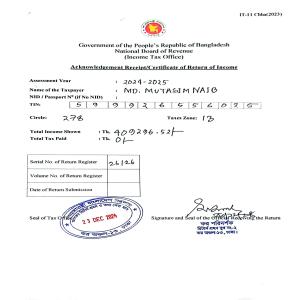 IT-11 Chha(2023)
Government of the People's Republic of Bangladesh
National Board of Revenue
(Income Tax Office)
Acknowledgement Receipt/Certificate of Return of Income
Assessment Year : 2024-2025
Name of the Taxpayer : MD. MUTASIM NAIB
NID / Passport No (if No NID) :
TIN:
Circle: 278 Taxes Zone: 13
Total Income Shown : Tk. 409296.52/-
Total Tax Paid : Tk. 0/-
Serial No. of Return Register 26/26
Volume No. of Return Register
Date of Return Submission
Seal of Tax Office
23 DEC 2024
Signature and Seal of the Official Receiving the Return
কর পরিদর্শক